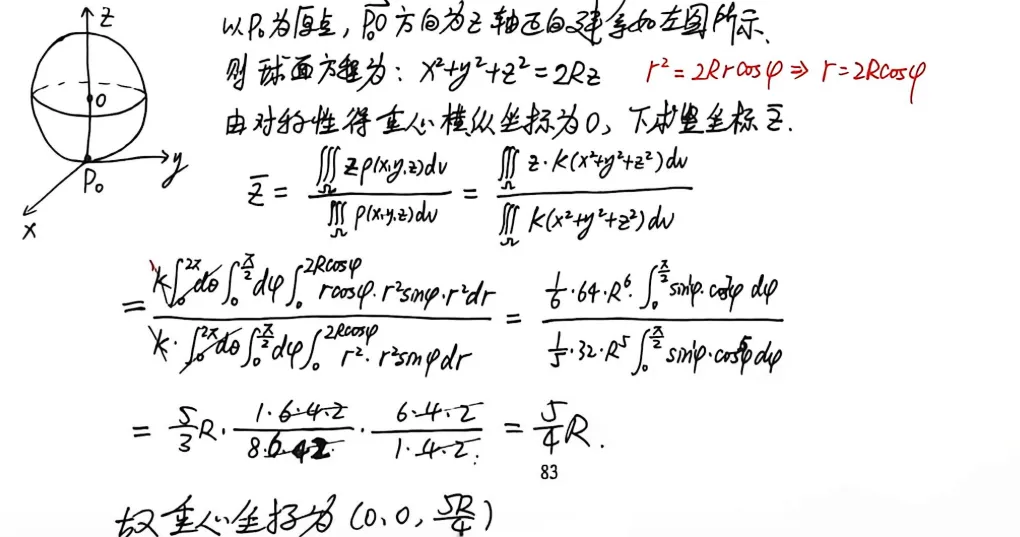 以P₀为原点，P₀O方向为z轴正向建系如左图所示、
则球面方程为：x²+y²+z²=2Rz r²=2Rrcosφ⇒r=2Rcosφ
由对称性得重心横纵坐标为0，下求竖坐标z̄.
z
O
y
P₀
x
z̄ = ∭_Ω zρ(x,y,z)dv / ∭_Ω ρ(x,y,z)dv = ∭_Ω z·k(x²+y²+z²)dv / ∭_Ω k(x²+y²+z²)dv
= k∫₀^{2π}dθ∫₀^{π/2}dφ∫₀^{2Rcosφ} rcosφ·r²sinφ·r²dr / k·∫₀^{2π}dθ∫₀^{π/2}dφ∫₀^{2Rcosφ} r²·r²sinφdr = 1/6·64·R⁶·∫₀^{π/2} sinφ·cos⁷φ dφ / 1/5·32·R⁵∫₀^{π/2} sinφ·cos⁵φdφ
= 5/3 R· 1·6·4·2 / 8·6·4·2 · 6·4·2 / 1·4·2 = 5/4 R.
83
故重心坐标为(0,0,5R/4)